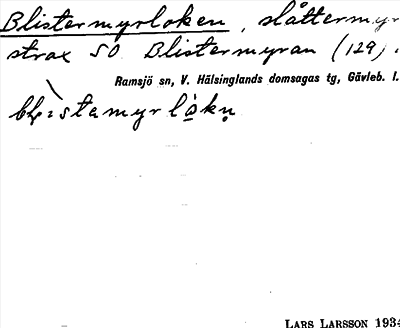 Blistermyrloken, slåttermyr
strax SO Blistermyran (129).
Ramsjö sn, V. Hälsinglands domsagas tg, Gävleb. l.
LARS LARSSON 1934